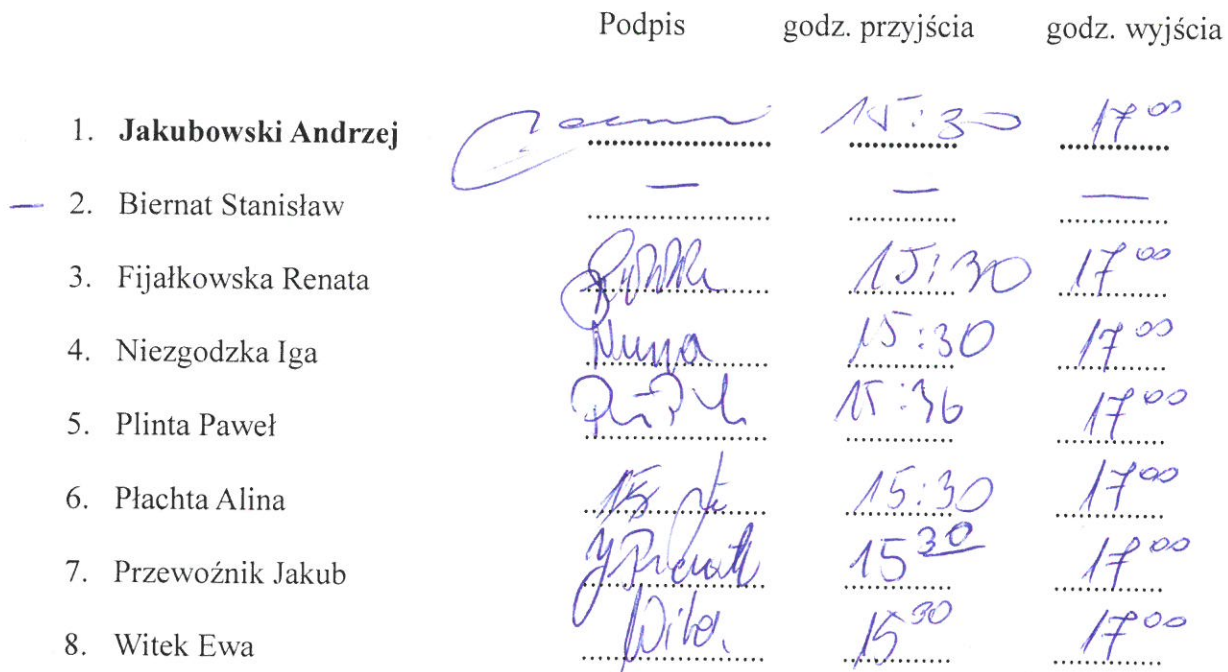 Podpis godz. przyjścia godz. wyjścia
1. Jakubowski Andrzej 15:30 17 00
— 2. Biernat Stanisław — — —
3. Fijałkowska Renata 15:30 17 00
4. Niezgodzka Iga 15:30 17 00
5. Plinta Paweł 15:36 17 00
6. Płachta Alina 15:30 17 00
7. Przewoźnik Jakub 15 30 17 00
8. Witek Ewa 15 30 17 00